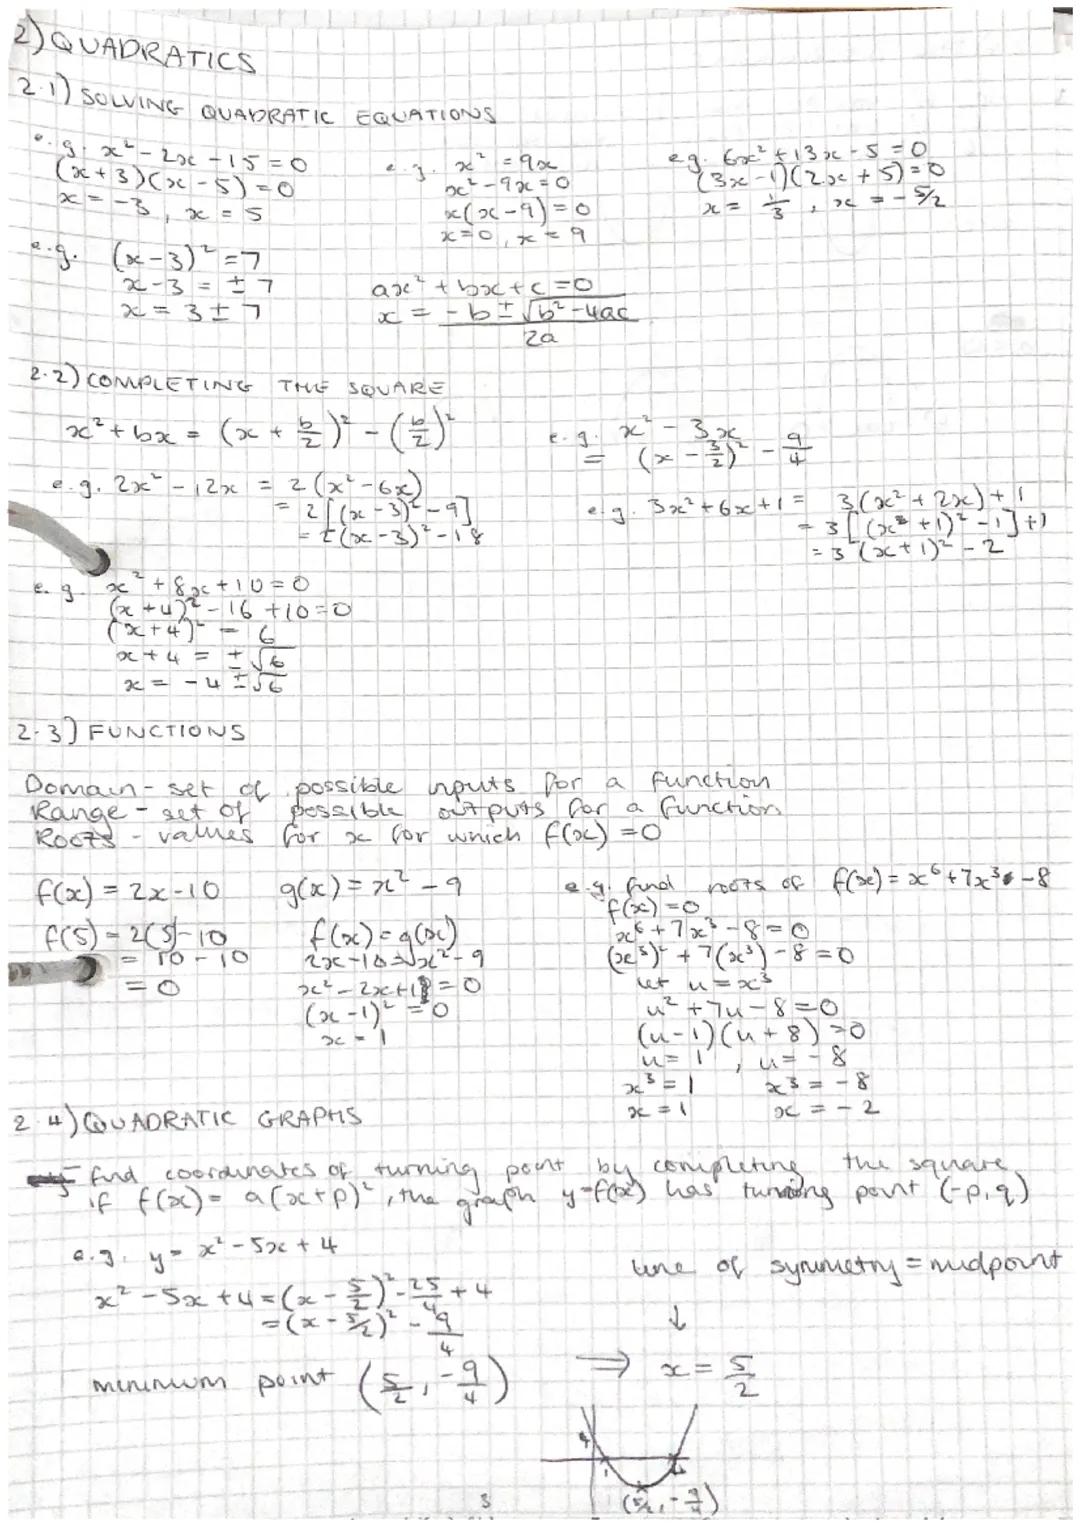 2) QUADRATICS
2.1) SOLVING QUADRATIC EQUATIONS
e.g. x² - 2x - 15 = 0
(x+3)(x-5) = 0
x = -3, x = 5
e.g. x² = 9x
x² - 9x = 0
x(x-9) = 0
x=0, x = 9
eg. 6x² + 13x - 5 = 0
(3x-1)(2x+5) = 0
x = 1/3, x = -5/2
e.g. (x-3)² = 7
x-3 = ± 7
x = 3 ± 7
ax² + bx + c = 0
x = (-b ± √(b²-4ac))/2a
2.2) COMPLETING THE SQUARE
x² + bx = (x + b/2)² - (b/2)²
e.g. x² - 3x
= (x - 3/2)² - 9/4
e.g. 2x² - 12x = 2(x²-6x)
= 2[(x-3)²-9]
= 2(x-3)²-18
e.g. 3x²+6x+1 = 3(x²+2x)+1
= 3[(x+1)²-1]+1
= 3(x+1)²-2
e.g. x²+8x+10=0
(x+4)²-16+10=0
(x+4)² = 6
x+4 = ±√6
x = -4 ±√6
2.3) FUNCTIONS
Domain - set of possible inputs for a function
Range - set of possible outputs for a function
Roots - values for x for which f(x) = 0
f(x) = 2x-10 g(x) = x² - 9
f(5) = 2(5)-10
= 10 - 10
= 0
f(x) = g(x)
2x-10 = x²-9
x²-2x+1 = 0
(x-1)² = 0
x = 1
e.g. find roots of f(x) = x⁶+7x³-8
f(x) = 0
x⁶+7x³-8=0
(x³)²+7(x³)-8=0
let u = x³
u²+7u-8=0
(u-1)(u+8)=0
u = 1, u = -8
x³ = 1 x³ = -8
x = 1 x = -2
2.4) QUADRATIC GRAPHS
- find coordinates of turning point by completing the square,
if f(x) = a(x+p)², the graph y=f(x) has turning point (-p,q)
e.g. y = x²-5x+4
x²-5x+4 = (x - 5/2)² - 25/4 + 4
= (x - 5/2)² - 9/4
minimum point (5/2, -9/4)
line of symmetry = midpoint
↓
⇒ x = 5/2
4
1 4
(5/2, -9/4)